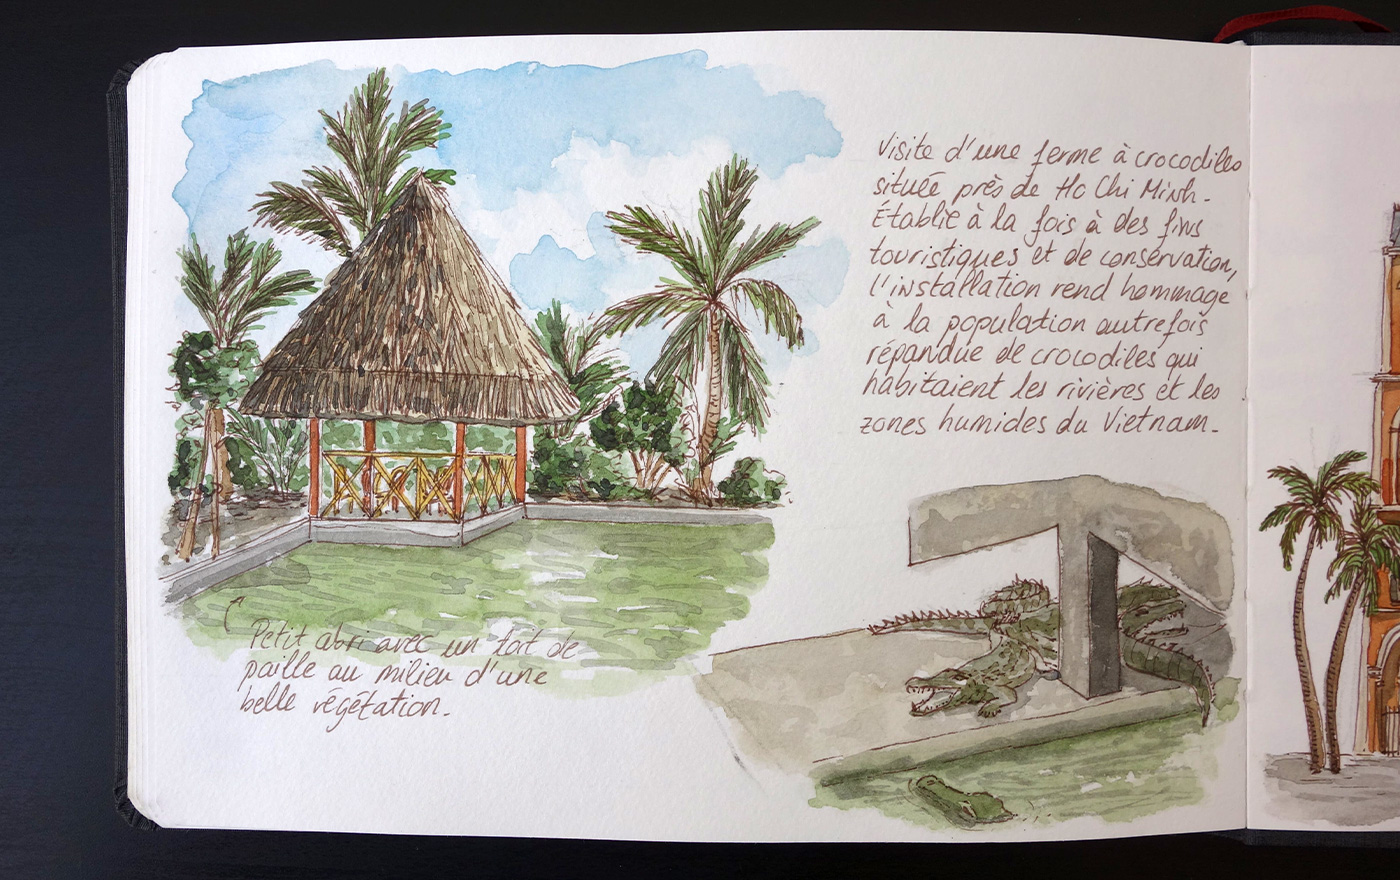 Visite d'une ferme à crocodiles
située près de Ho Chi Minh.
Établie à la fois à des fins
touristiques et de conservation,
l'installation rend hommage
à la population autrefois
répandue de crocodiles qui
habitaient les rivières et les
zones humides du Vietnam.
Petit abri avec un toit de
paille au milieu d'une
belle végétation.